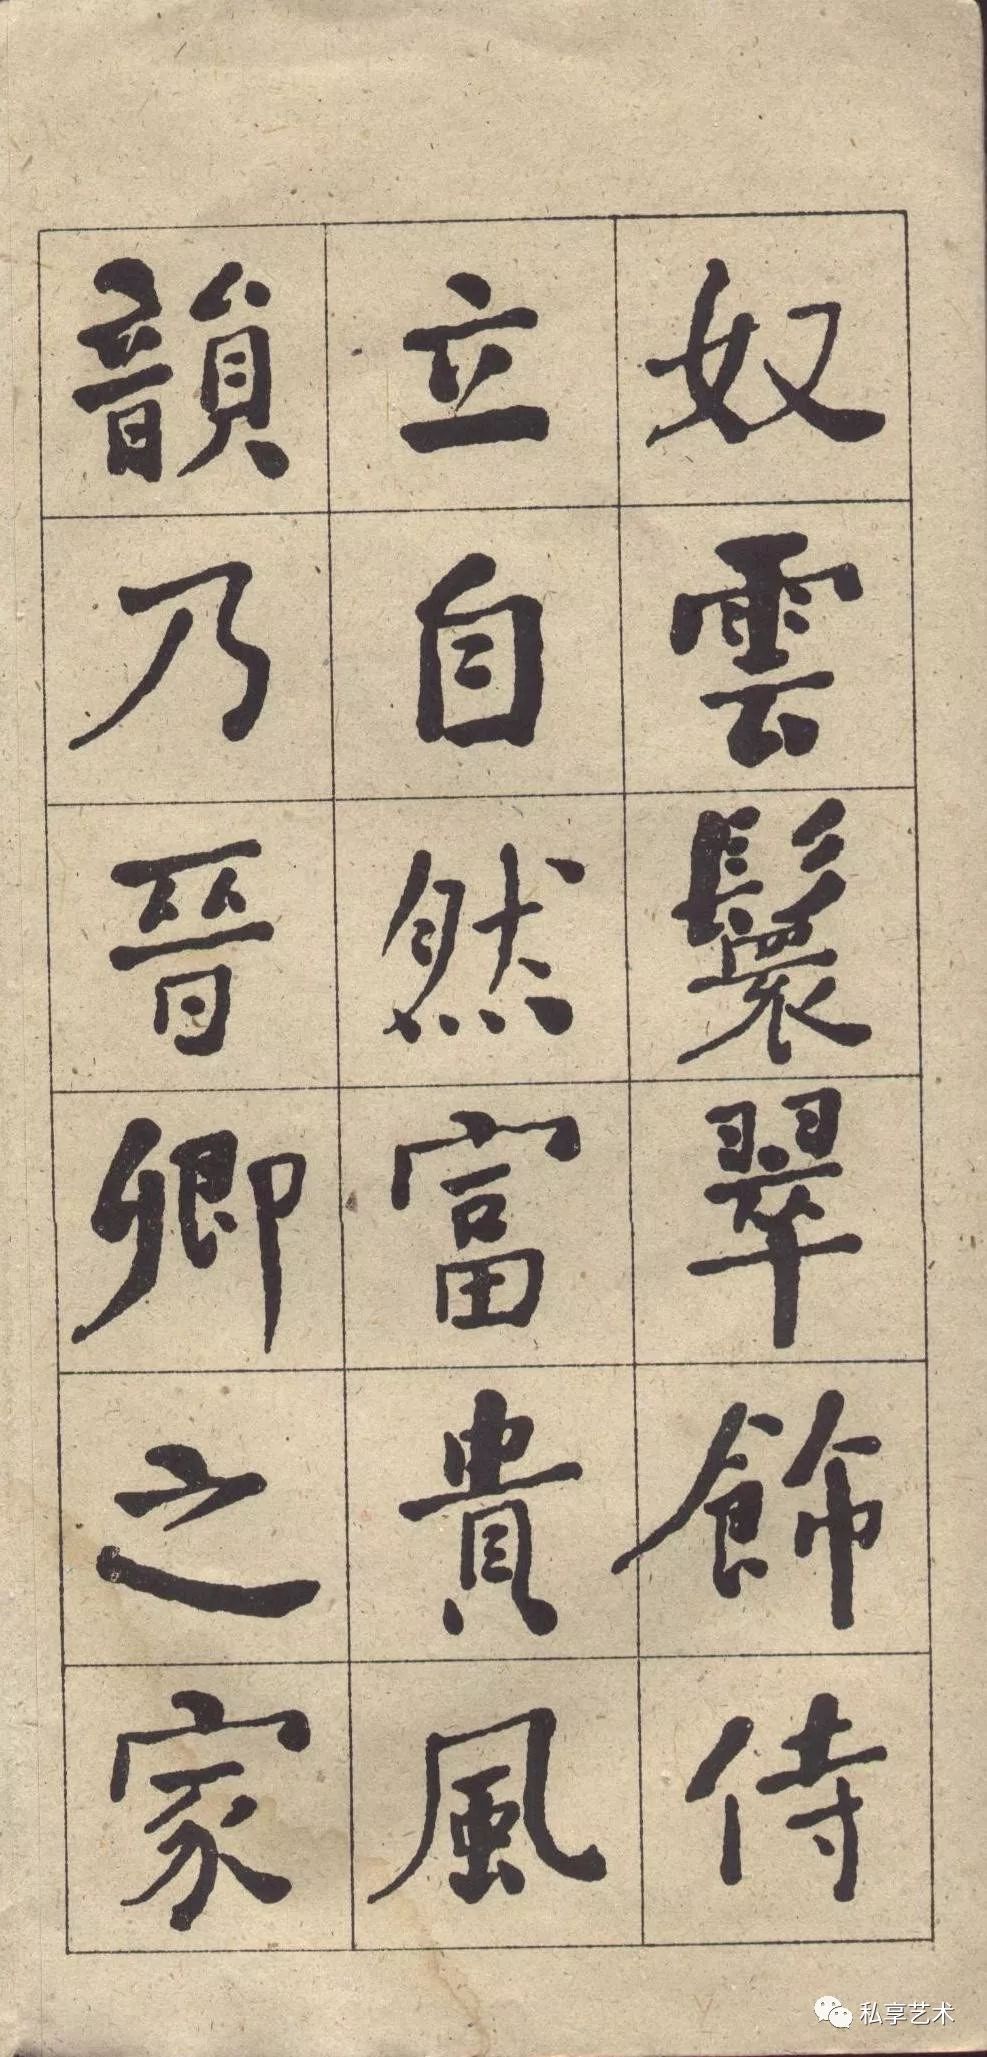 奴雲鬟翠飾侍
立自然富貴風
韻乃晉卿之家
私享艺术